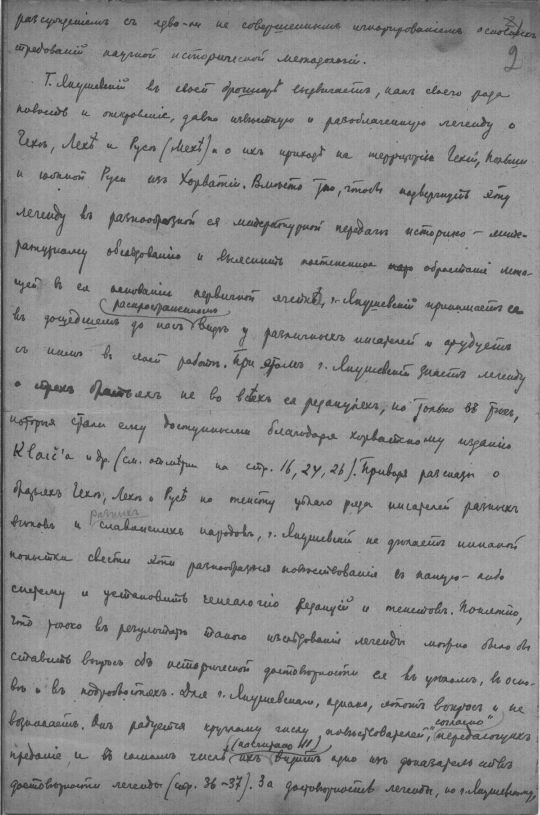 разсужденіемъ съ едва-ли не совершеннымъ игнорированіемъ основныхъ
2
требованій научной исторической методологіи.
Г. Янушевскій въ своей брошюрѣ выдвигаетъ, какъ своего рода
новость и откровеніе, давно извѣстную и разоблаченную легенду о
Чехѣ, Лехѣ и Русѣ (Мехѣ) и о ихъ приходѣ на территорію Чехіи, Польши
и южной Руси изъ Хорватіи. Вмѣсто того, чтобы подвергнуть эту
легенду въ разнообразной ея литературной передачѣ историко-лите-
ратурному обслѣдованію и выяснить постепенное обростаніе
въ ея основаніи первичной ячейки, г. Янушевскій принимаетъ ее
распространенномъ
въ дошедшемъ до насъ видѣ у различныхъ писателей и орудуетъ
съ нимъ въ своей работѣ. При этомъ г. Янушевскій знаетъ легенду
о трехъ братьяхъ не во всѣхъ ея редакціяхъ, но только въ трехъ,
которыя стали ему доступными благодаря хорватскому изданію
Klaić'а и др. (см. отмѣтки на стр. 16, 24, 26). Приводя разсказы о
братьяхъ Чехѣ, Лехѣ и Русѣ по тексту цѣлаго ряда писателей разныхъ
разныхъ
вѣковъ и славянскихъ народовъ, г. Янушевскій не дѣлаетъ никакой
попытки свести эти разнообразныя повѣствованія въ какую-либо
систему и установить генеалогію редакцій и текстовъ. Понятно,
что только въ результатѣ такого изслѣдованія легенды можно было бы
ставить вопросъ объ исторической достовѣрности ея въ цѣломъ, въ осно-
вѣ и въ подробностяхъ. Для г. Янушевскаго, однако, этотъ вопросъ и не
возникаетъ. Онъ радуется круглому числу повѣствователей, "согласно" передающихъ
преданіе и въ самомъ числѣ ихъ (насчитано III) видитъ одно изъ доказательствъ
достовѣрности легенды (стр. 36-37). За достовѣрность легенды, по г. Янушевскому,